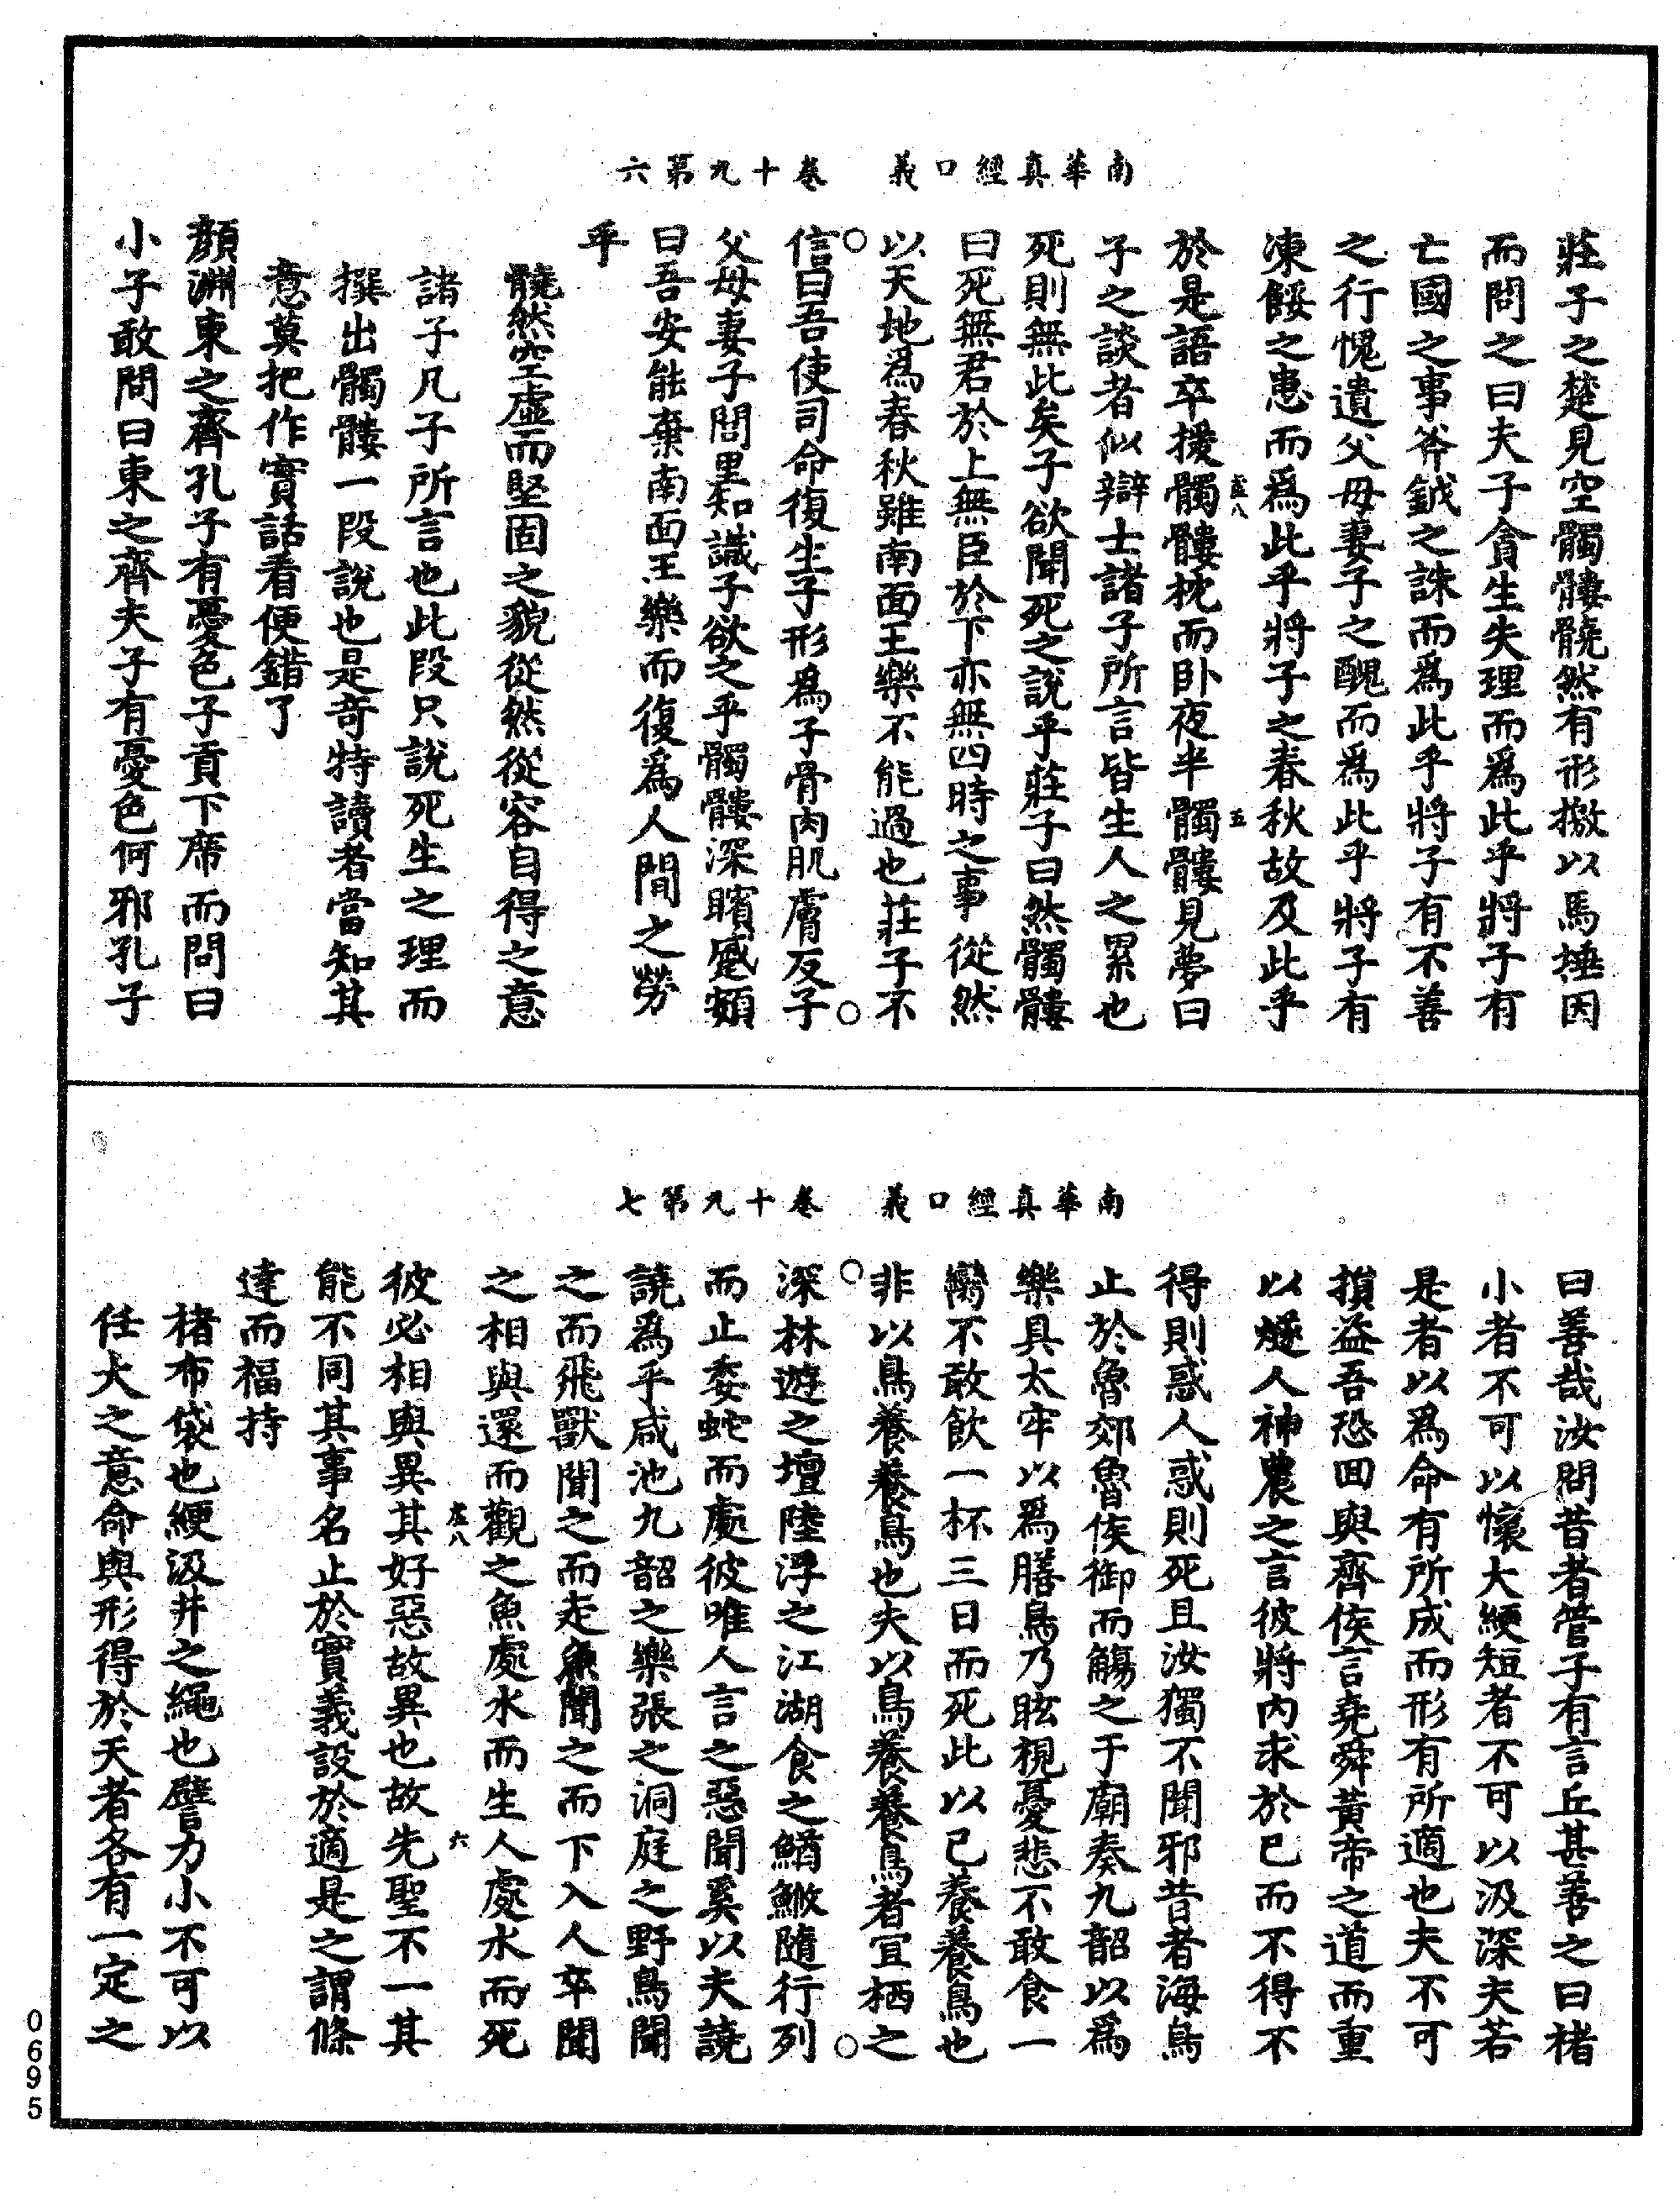 南華真經口義　卷十九第六
莊子之楚見空髑髏髐然有形撽以馬捶因
而問之曰夫子貪生失理而爲此乎將子有
亡國之事斧鉞之誅而爲此乎將子有不善
之行愧遺父母妻子之醜而爲此乎將子有
凍餒之患而爲此乎將子之春秋故及此乎
虛八　五
於是語卒援髑髏枕而卧夜半髑髏見夢曰
子之談者似辯士諸子所言皆生人之累也
死則無此矣子欲聞死之說乎莊子曰然髑髏
曰死無君於上無臣於下亦無四時之事從然
以天地爲春秋雖南面王樂不能過也莊子不
信曰吾使司命復生子形爲子骨肉肌膚反子
父母妻子閭里知識子欲之乎髑髏深矉蹙頞
曰吾安能棄南面王樂而復爲人間之勞
乎
髐然空虛而堅固之貌從然從容自得之意
諸子凡子所言也此段只說死生之理而
撰出髑髏一段說也是奇特讀者當知其
意莫把作實話看便錯了
顏淵東之齊孔子有憂色子貢下席而問曰
小子敢問曰東之齊夫子有憂色何邪孔子
南華真經口義　卷十九第七
曰善哉汝問昔者管子有言丘甚善之曰楮
小者不可以懷大綆短者不可以汲深夫若
是者以爲命有所成而形有所適也夫不可
損益吾恐回與齊侯言堯舜黃帝之道而重
以燧人神農之言彼將內求於己而不得不
得則惑人惑則死且汝獨不聞邪昔者海鳥
止於魯郊魯侯御而觴之于廟奏九韶以爲
樂具太牢以爲膳鳥乃眩視憂悲不敢食一
臠不敢飲一杯三日而死此以己養養鳥也
非以鳥養養鳥也夫以鳥養養鳥者宜栖之
深林遊之壇陸浮之江湖食之鰌鮍隨行列
而止委蛇而處彼唯人言之惡聞奚以夫譊
譊爲乎咸池九韶之樂張之洞庭之野鳥聞
之而飛獸聞之而走魚聞之而下入人卒聞
之相與還而觀之魚處水而生人處水而死
虛八　六
彼必相與異其好惡故異也故先聖不一其
能不同其事名止於實義設於適是之謂條
達而福持
楮布袋也綆汲井之繩也譬力小不可以
任大之意命與形得於天者各有一定之
0695